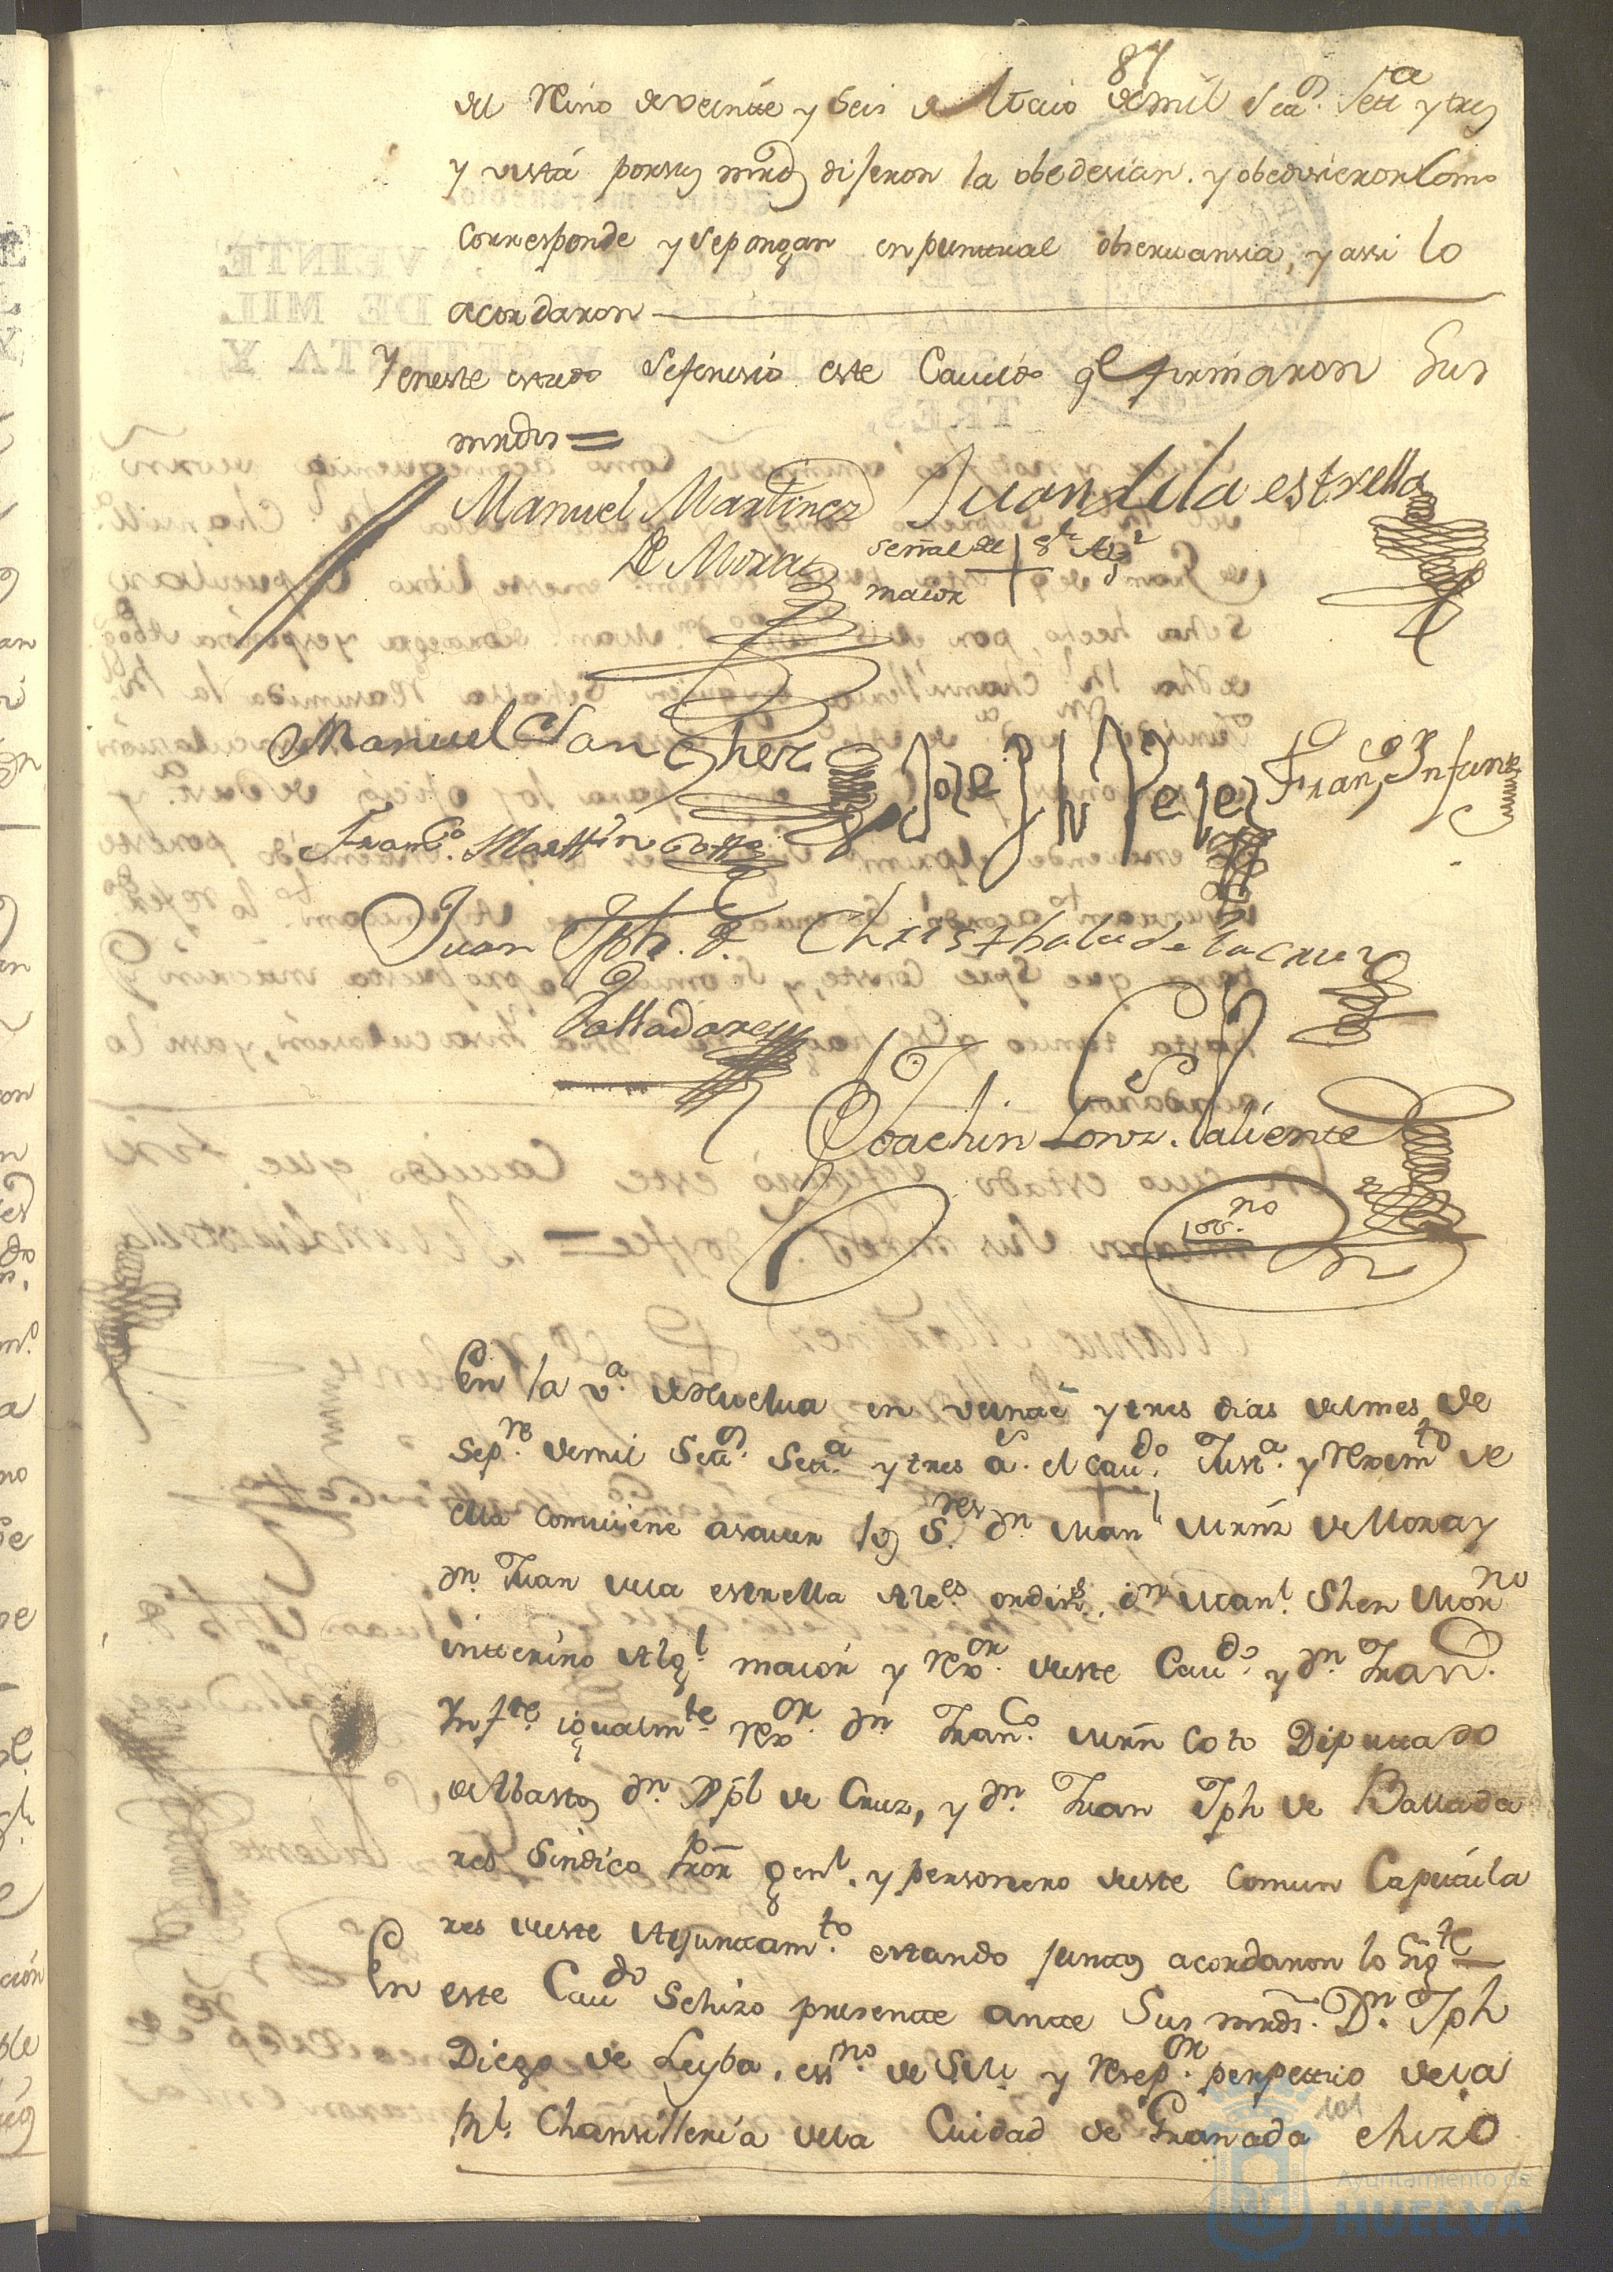 87
del Reino de veinte y seis de Maio de mil Setᵒˢ. Settᵃ y tres
y vista por sus mrds dijeron la obedesian. y obedesieron Como
Corresponde y se pongan en puntual observansia, y assi lo
acordaron
Y en este estado Se feneció este Cavildo qᵉ firmaron Sus
mrdes =
Manuel Martinez Juan de la estrella
de Mora señal del + Alg
maior
Manuel Sanchez Jose Franᶜᵒ Infante
Franᶜᵒ. Martin Cotto
Juan Jph. de Christhobal de la Cruz
Valladares
Joachin Gonz. Valiente
En la vᵃ. de Huelva en veinte y tres dias del mes de
Sepʳᵉ. de mil Setᵒˢ. Settᵃ y tres aˢ. el cavᵈᵒ. Justᵃ. y Reximᵗᵒ de
ella combiene a saver los Sʳᵉˢ dⁿ Manˡ Mrñz de Mora y
dⁿ. Juan de la estrella Alcᵉˢ ordinˢ. dⁿ Manˡ. Shez Morⁿᵒ
intterino Algˡ maior y Rexᵒʳ. de este Cavᵈᵒ. y dⁿ. Franᶜᵒ.
Infᵗᵉ. igualmᵗᵉ Rexᵒʳ. dⁿ Franᶜᵒ. Mrñ Coto Diputtado
de Abastos dⁿ. Xpbl de Cruz, y dⁿ. Juan Jph de Vallada
res Sindico Pror genˡ. y personero de este Comun Capitula
res de este Ayuntamᵗᵒ. estando juntos acordaron lo sigᵗᵉ
En este Cavᵈᵒ Se hizo presente ante Sus mrds. Dⁿ. Jph
Diego de Leyba, essⁿᵒ. de S.M. y Resepᵒʳ perpettuo de la
Rˡ. Chansilleria de la Cuidad de Granada e hizo
101
Ayuntamiento de
HUELVA